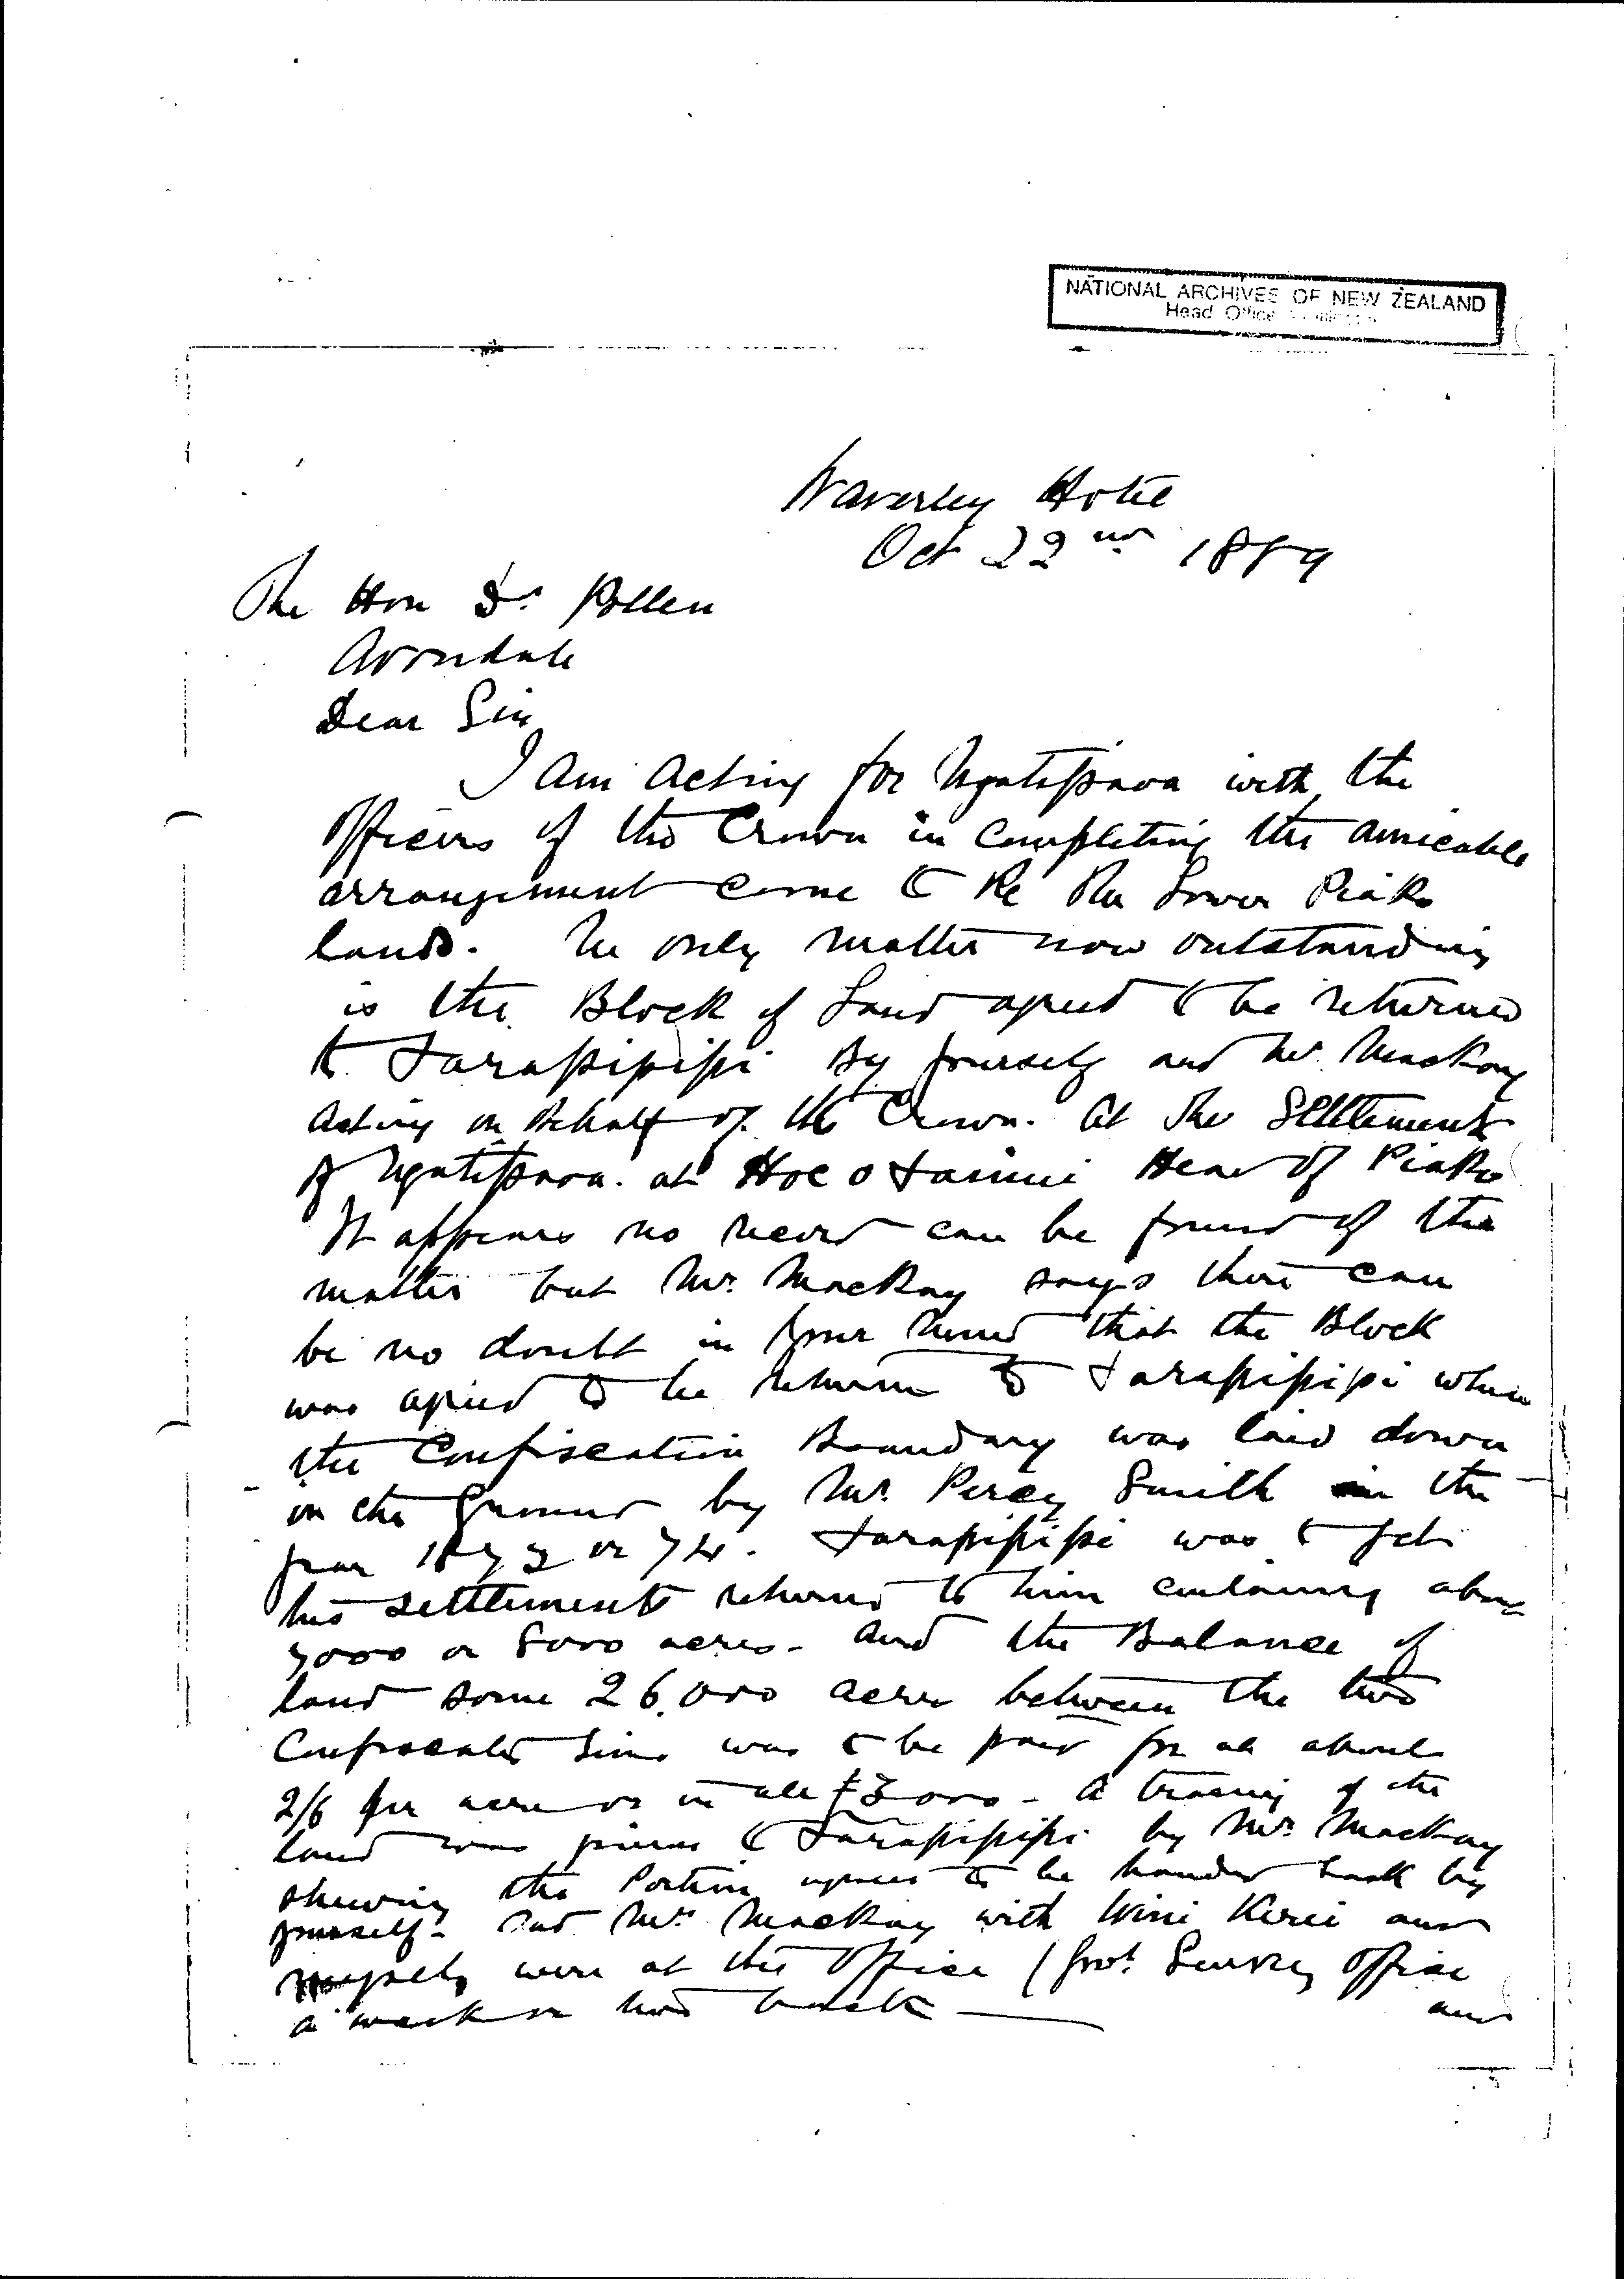 NATIONAL ARCHIVES OF NEW ZEALAND
Head Office
Waverley Hotel
Oct 22nd 1889
The Hon Dr. Pollen
Avondale
Dear Sir
I am acting for Ngatipaoa with the
Officers of the Crown in completing the amicable
arrangement come to Re the Lower Piako
lands. The only matter now outstanding
is the Block of Land agreed to be returned
to Tarapipipi By yourself and Mr. Mackay
acting on Behalf of the Crown. at the Settlement
of Ngatipaoa. at Hoe o Tainui Head of Piako
It appears no record can be found of the
matter but Mr. Mackay says there can
be no doubt in your mind that the Block
was agreed to be returned to Tarapipipi when
the Confiscation Boundary was laid down
on the Ground by Mr. Percy Smith in the
year 1873 or 74. Tarapipipi was to get
his settlements returned to him containing about
7000 or 8000 acres - and the Balance of
land some 26,000 acres between the two
Confiscated lines was to be paid for at about
2/6 per acre or in all £3000 - a tracing of the
land was given to Tarapipipi by Mr. Mackay
shewing the Portion agreed to be handed back by
yourself - and Mr. Mackay with Wini Kerei and
myself were at the Office (Govt. Survey Office
a week or two back
and